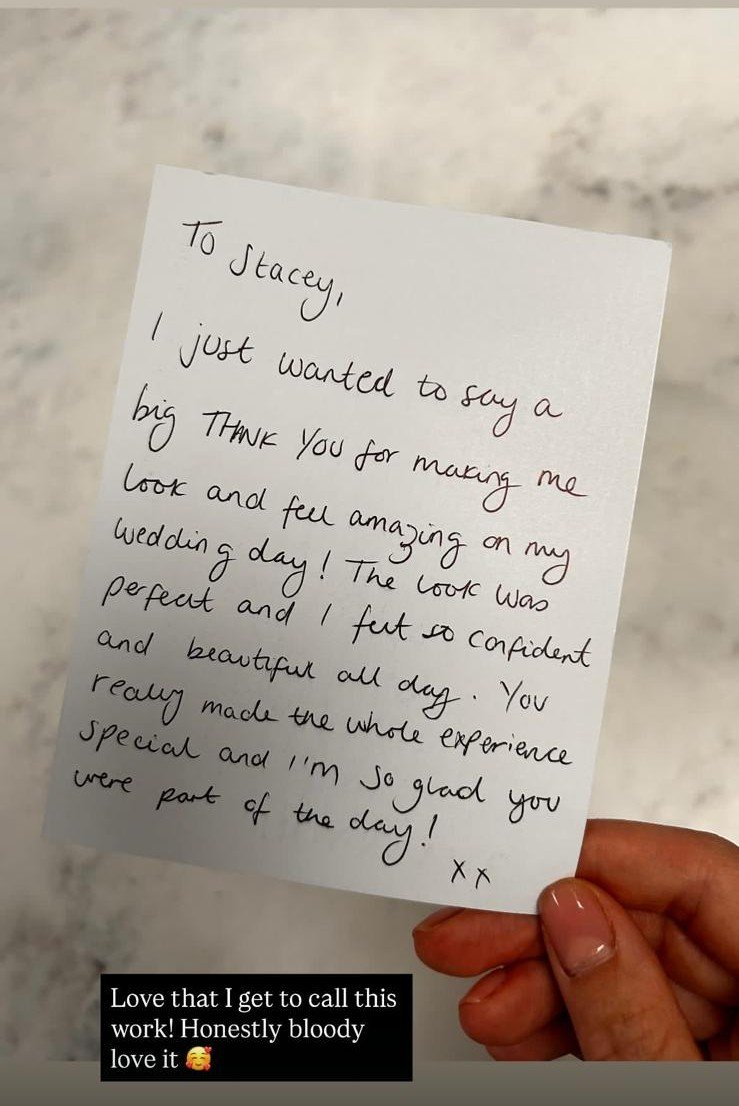 To Stacey,
I just wanted to say a
big THANK YOU for making me
look and feel amazing on my
wedding day! The look was
perfect and I felt so confident
and beautiful all day. You
really made the whole experience
special and I'm so glad you
were part of the day!
xx
Love that I get to call this
work! Honestly bloody
love it 🥰